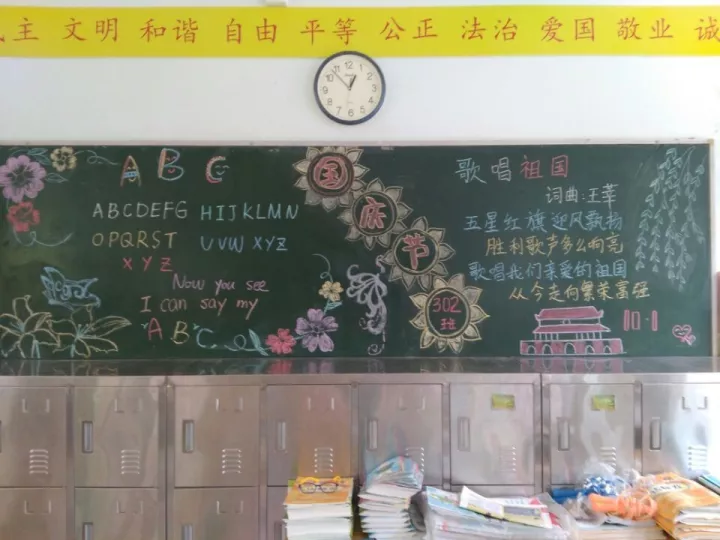 主 文明 和谐 自由 平等 公正 法治 爱国 敬业 诚
12
1
2
3
4
5
6
7
8
9
10
11
A B C
ABCDEFG HIJKLMN
OPQRST UVW XYZ
XYZ
Now you see
I can say my
"A B C"
国
庆
节
302
班
歌唱祖国
词曲:王莘
五星红旗迎风飘扬
胜利歌声多么响亮
歌唱我们亲爱的祖国
从今走向繁荣富强
10·1